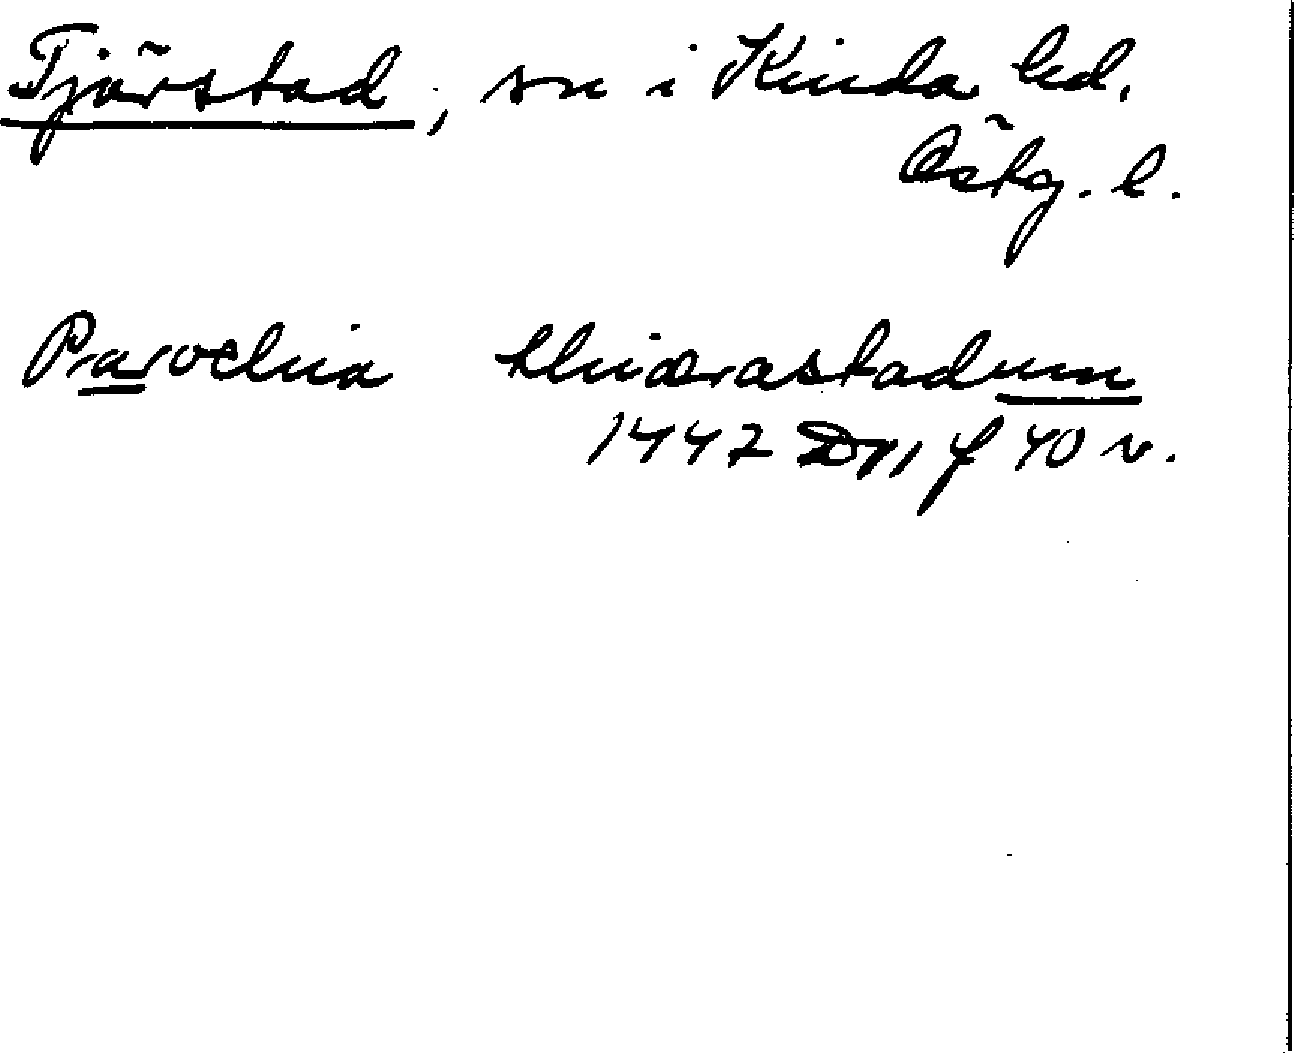 Tjärstad, sn i Kinda hd.
Östg. l.
Parochia thiærastadum
1447 D 11 f 40 v.